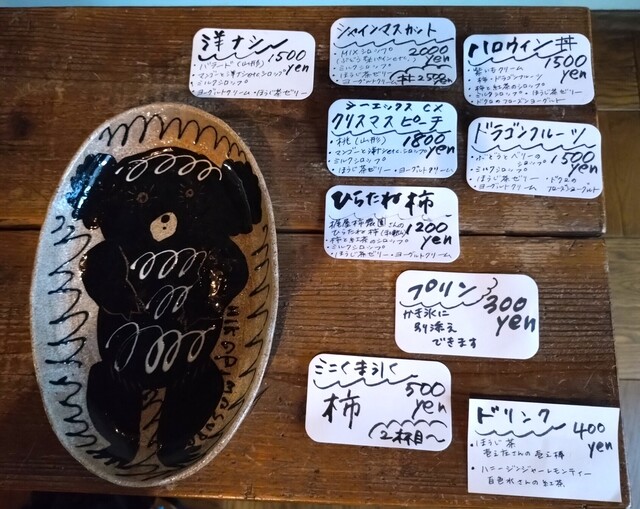 洋ナシ
1500 yen
・マンゴーと洋ナシxワインシロップ
・ミルクシロップ
ヨーグルトクリーム・ほうじ茶ゼリー
シャインマスカット
2000 yen
・ミルクシロップ
・ほうじ茶ゼリー
・ヨーグルトクリーム
ハロウィン丼
1500 yen
・紫いもクリーム
・柿・ドラゴンフルーツ
・柿と紅茶のシロップ
・ミルクシロップ・ほうじ茶ゼリー
・ドクロのフローズンヨーグルト
フェニックス CX
クリスマスピーチ
1800 yen
・桃(山形)
・ミルクシロップ
・ほうじ茶ゼリー・ヨーグルトクリーム
ドラゴンフルーツ
1500 yen
・ミルクシロップ
・ほうじ茶ゼリー
・ヨーグルトクリーム
・ドクロのフローズンヨーグルト
ひらたね柿
1200 yen
ひらたね柿
・柿と紅茶のシロップ
・ミルクシロップ
・ほうじ茶ゼリー・ヨーグルトクリーム
プリン
300 yen
かき氷に
別添え
できます
ミニくま氷
柿
500 yen
(2杯目〜)
ドリンク
400 yen
・ほうじ茶
・ハニージンジャーレモンティー